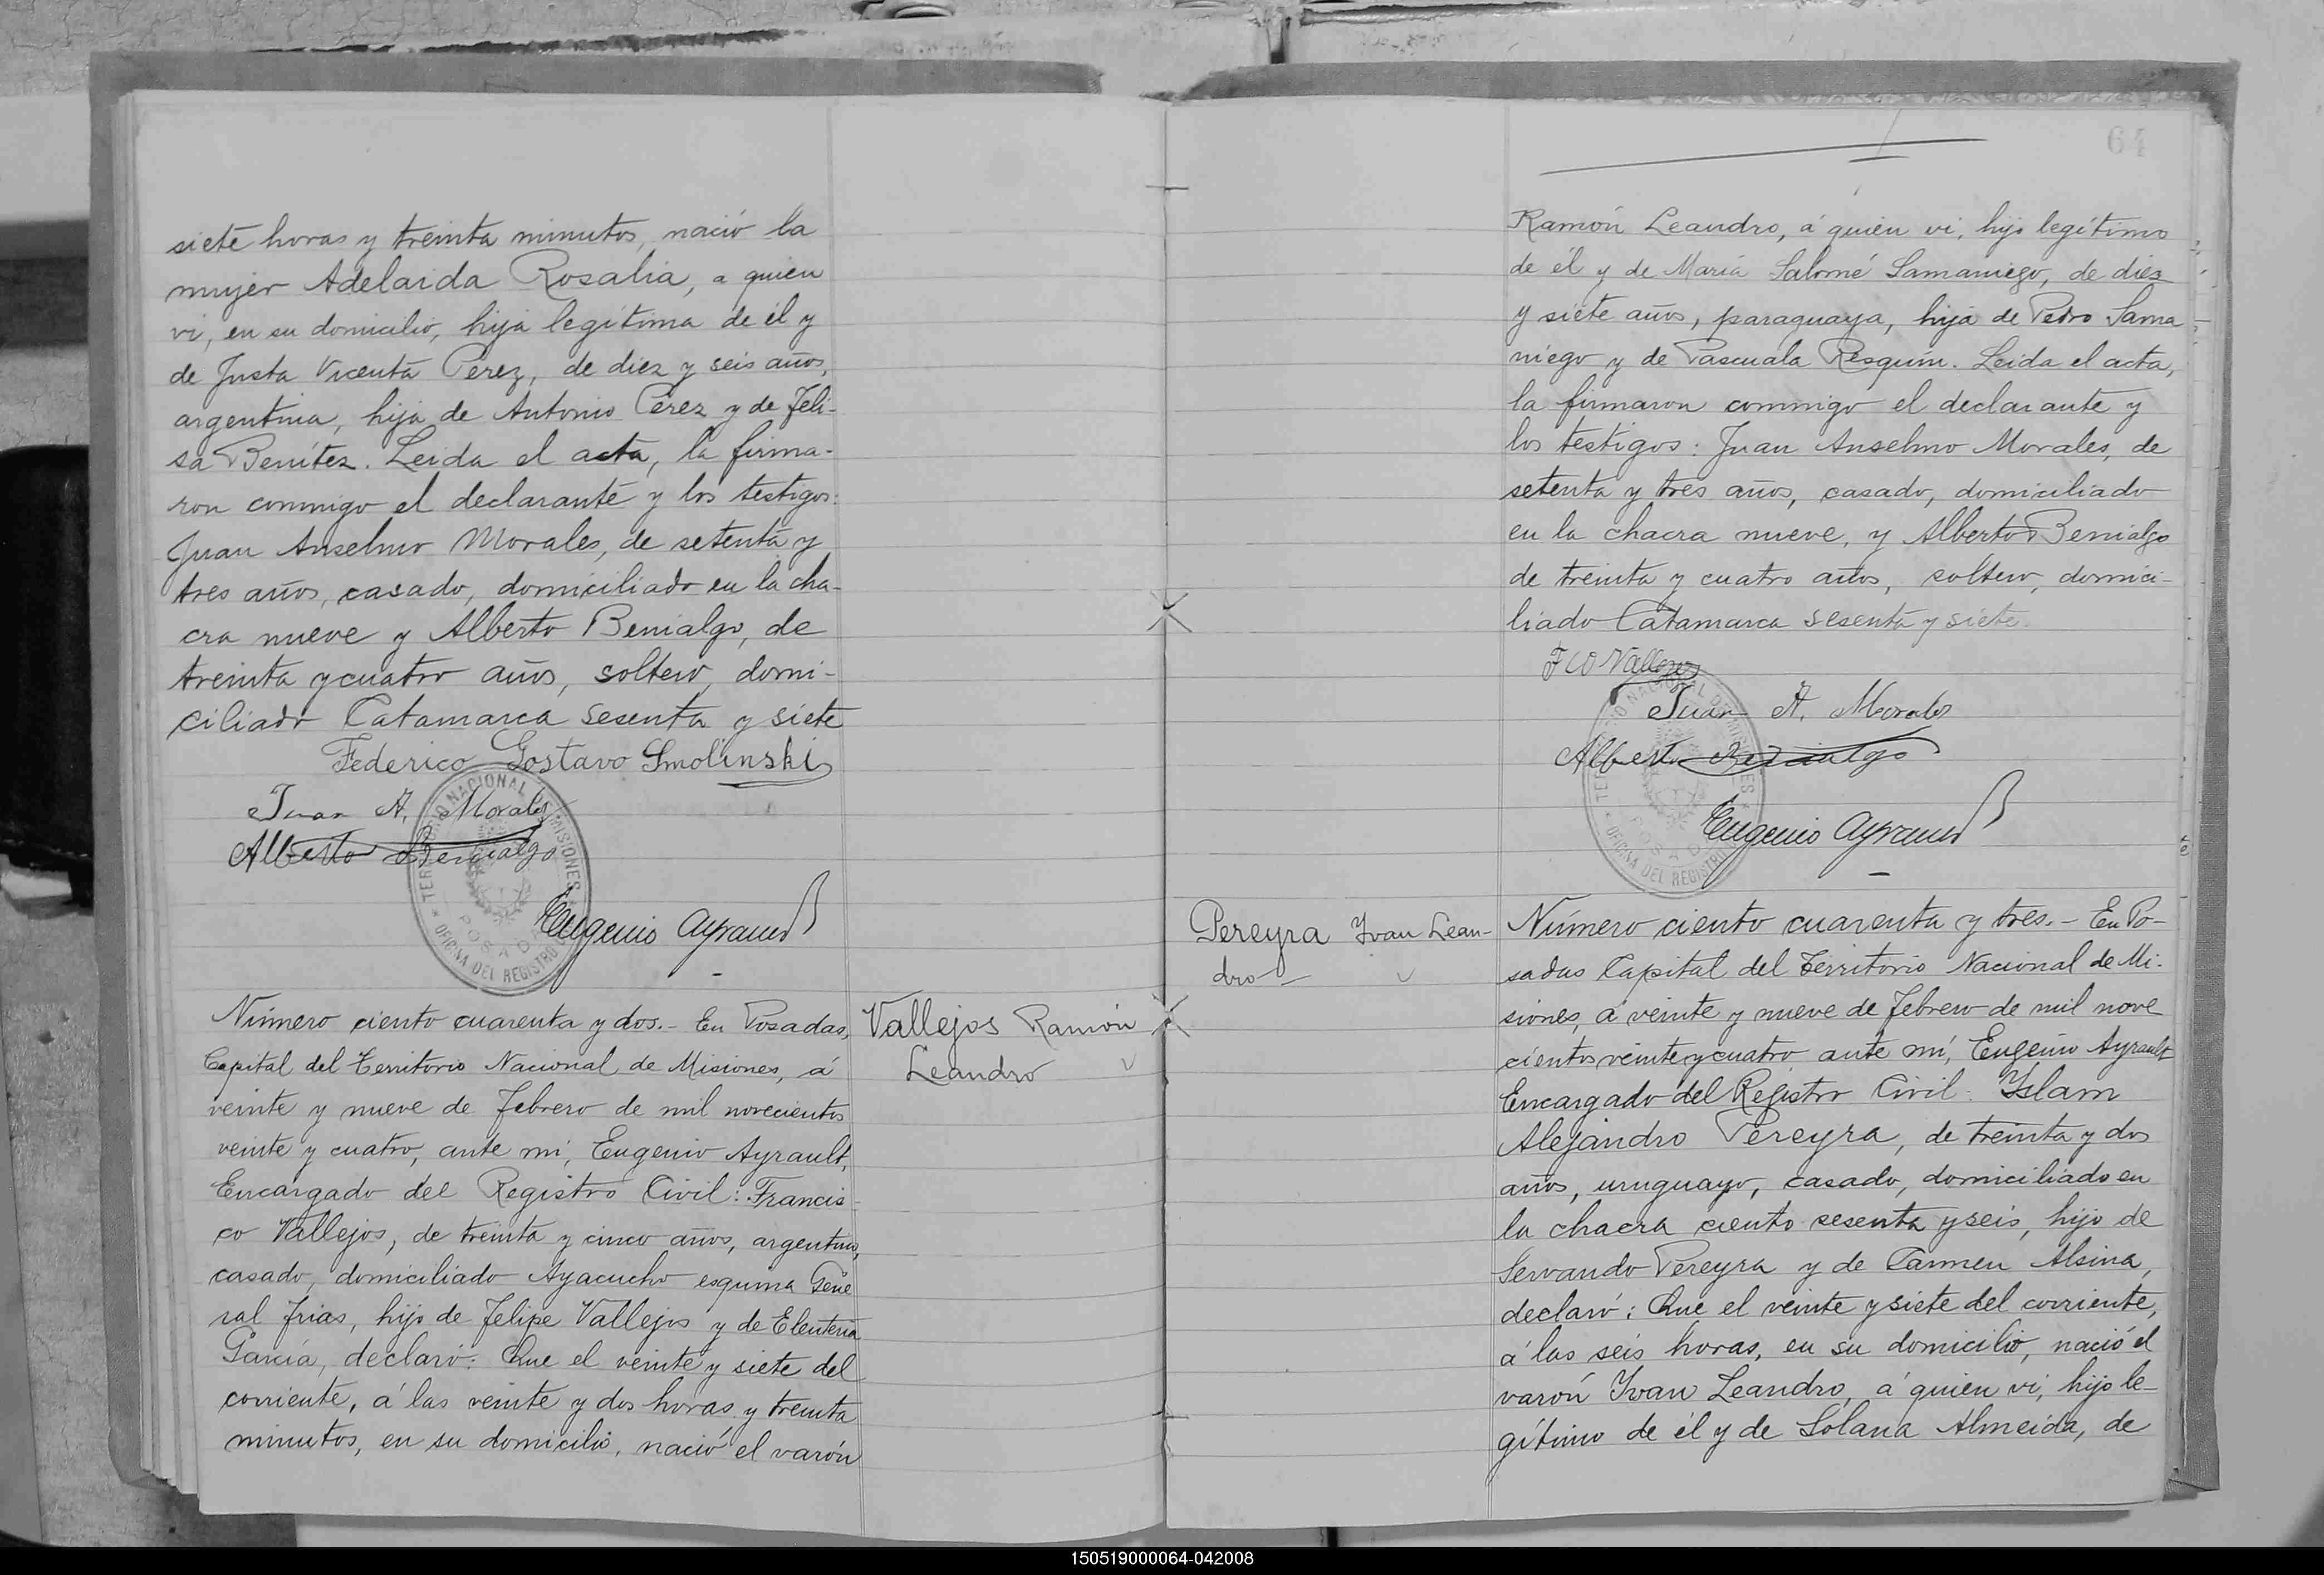 siete horas y treinta minutos, nació la
mujer Adelaida Rosalia, a quien
vi, en su domicilio, hija legítima de él y
de Justa Vicenta Perez, de diez y seis años,
argentina, hija de Antonio Perez y de Feli-
sa Benítez. Leida el acta, la firma-
ron conmigo el declarante y los testigos:
Juan Anselmo Morales, de setenta y
tres años, casado, domiciliado en la cha-
cra nueve y Alberto Benialgo, de
treinta y cuatro años, soltero, domi-
ciliado Catamarca sesenta y siete
Federico Gostavo Smolinski
Juan A. Morales
Alberto Benialgo
TERRITORIO NACIONAL DE MISIONES
POSADAS
OFICINA DEL REGISTRO
Eugenio Ayrault
Número ciento cuarenta y dos.- En Posadas,
Capital del Territorio Nacional de Misiones, á
veinte y nueve de Febrero de mil novecientos
veinte y cuatro, ante mí, Eugenio Ayrault,
Encargado del Registro Civil: Francis-
co Vallejos, de treinta y cinco años, argentino,
casado, domiciliado Ayacucho esquina Gene
ral Frias, hijo de Felipe Vallejos y de Eleuteria
García, declaró: Que el veinte y siete del
corriente, á las veinte y dos horas y treinta
minutos, en su domicilio, nació el varón
Vallejos Ramón
Leandro
64
Ramón Leandro, á quien vi, hijo legítimo
de él y de María Salomé Samaniego, de diez
y siete años, paraguaya, hija de Pedro Sama
niego y de Pascuala Resquin. Leida el acta,
la firmaron conmigo el declarante y
los testigos: Juan Anselmo Morales, de
setenta y tres años, casado, domiciliado
en la chacra nueve, y Alberto Benialgo
de treinta y cuatro años, soltero, domici-
liado Catamarca sesenta y siete.
Fco Vallejos
Juan A. Morales
Alberto Benialgo
TERRITORIO NACIONAL DE MISIONES
POSADAS
OFICINA DEL REGISTRO
Eugenio Ayrault
Pereyra Yvan Lean-
dro
Número ciento cuarenta y tres.- En Po-
sadas Capital del Territorio Nacional de Mi-
siones, á veinte y nueve de Febrero de mil nove
cientos veinte y cuatro, ante mí, Eugenio Ayrault
Encargado del Registro Civil: Yslam
Alejandro Pereyra, de treinta y dos
años, uruguayo, casado, domiciliado en
la chacra ciento sesenta y seis, hijo de
Servando Pereyra y de Carmen Alsina,
declaró: Que el veinte y siete del corriente,
á las seis horas, en su domicilio, nació el
varón Yvan Leandro, á quien vi, hijo le-
gítimo de él y de Solana Almeida, de
150519000064-042008